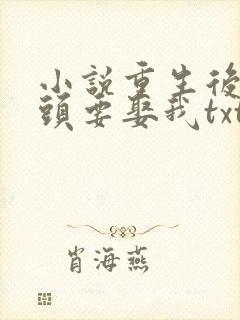 小說重生後
頭要娶我txt
肖海燕